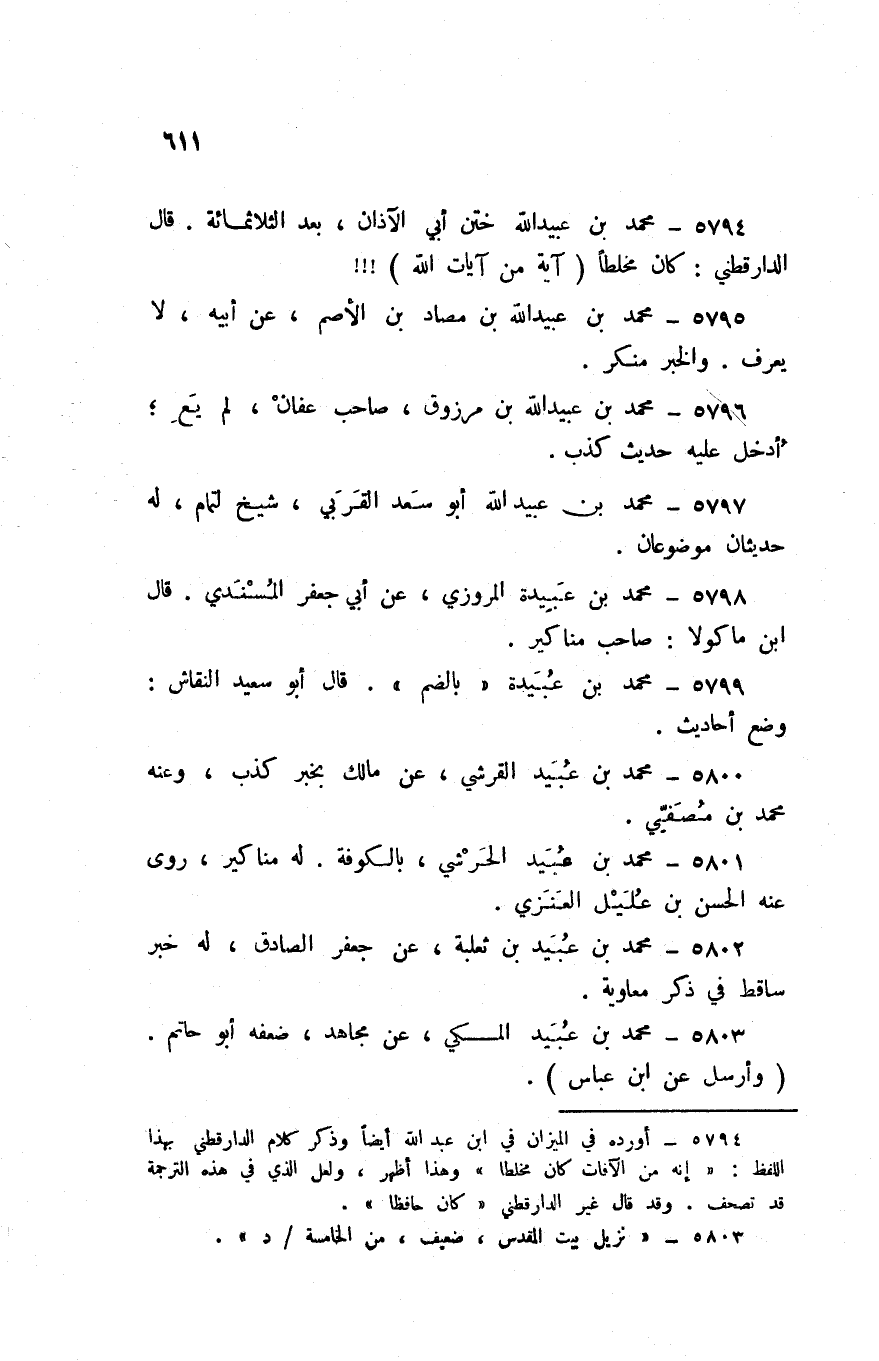 ٦١١
٥٧٩٤ ـ محمد بن عبيدالله ختن أبي الآذان ، بعد الثلاثمـائة . قال
الدارقطني : كان مخلطاً ( آية من آيات الله ) !!!
٥٧٩٥ ـ محمد بن عبيدالله بن مصاد بن الأصم ، عن أبيه ، لا
يعرف . والخبر منـكر .
٥٧٩٦ ـ محمد بن عبيدالله بن مرزوق ، صاحب عفانْ ، لم يَعِ ؛
أُدخل عليه حديث كذب .
٥٧٩٧ ـ محمد بن عبيد الله أبو سَعد القَرَبي ، شيـخ لتمام ، له
حديثان موضوعان .
٥٧٩٨ ـ محمد بن عَبِيدة المروزي ، عن أبي جعفر المُسْنَدي . قال
ابن ماكولا : صاحب مناكير .
٥٧٩٩ ـ محمد بن عُبَيدة « بالضم » . قال أبو سعيد النقاش :
وضع أحاديث .
٥٨٠٠ ـ محمد بن عُبَيد القرشي ، عن مالك بخبر كذب ، وعنه
محمد بن مُصَفّي .
٥٨٠١ ـ محمد بن عُبَيد الحَرْشي ، بالـكوفة . له مناكير ، روى
عنه الحسن بن عُلَيْل العَنَزي .
٥٨٠٢ ـ محمد بن عُبَيد بن ثعلبة ، عن جعفر الصادق ، له خبر
ساقط في ذكر معاوية .
٥٨٠٣ ـ محمد بن عُبَيد المـــكي ، عن مجاهد ، ضعفه أبو حاتم .
( وأرسل عن ابن عباس ) .
٥٧٩٤ ـ أورده في الميزان في ابن عبد الله أيضاً وذكر كلام الدارقطني بهذا
اللفظ : « إنه من الآفات كان مخلطا » وهذا أظهر ، ولعل الذي في هذه الترجمة
قد تصحف . وقد قال غير الدارقطني « كان حافظا » .
٥٨٠٣ ـ « نزيل بيت المقدس ، ضعيف ، من الخامسة / د » .